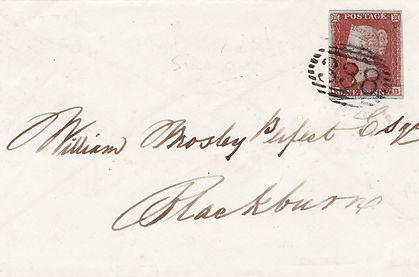 POSTAGE
338
William Mosley Perfect Esqr
Blackburn